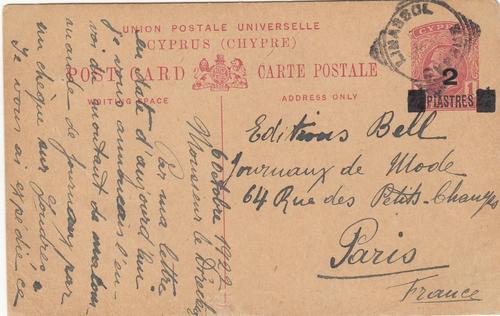 UNION POSTALE UNIVERSELLE
CYPRUS (CHYPRE)
POST CARD CARTE POSTALE
WRITING SPACE
ADDRESS ONLY
LIMASSOL
CYPRUS
2
PIASTRES
Editions Bell
Journaux de Mode
64 Rue des Petits-Champs
Paris
France
6 Octobre 1922
Monsieur le Directeur
Par ma lettre
en date d'aujourd'hui
je vous annonçais l'en-
voi du montant de ma com-
mande de journaux par
un chèque sur Londres
Je vous ai expédié ce